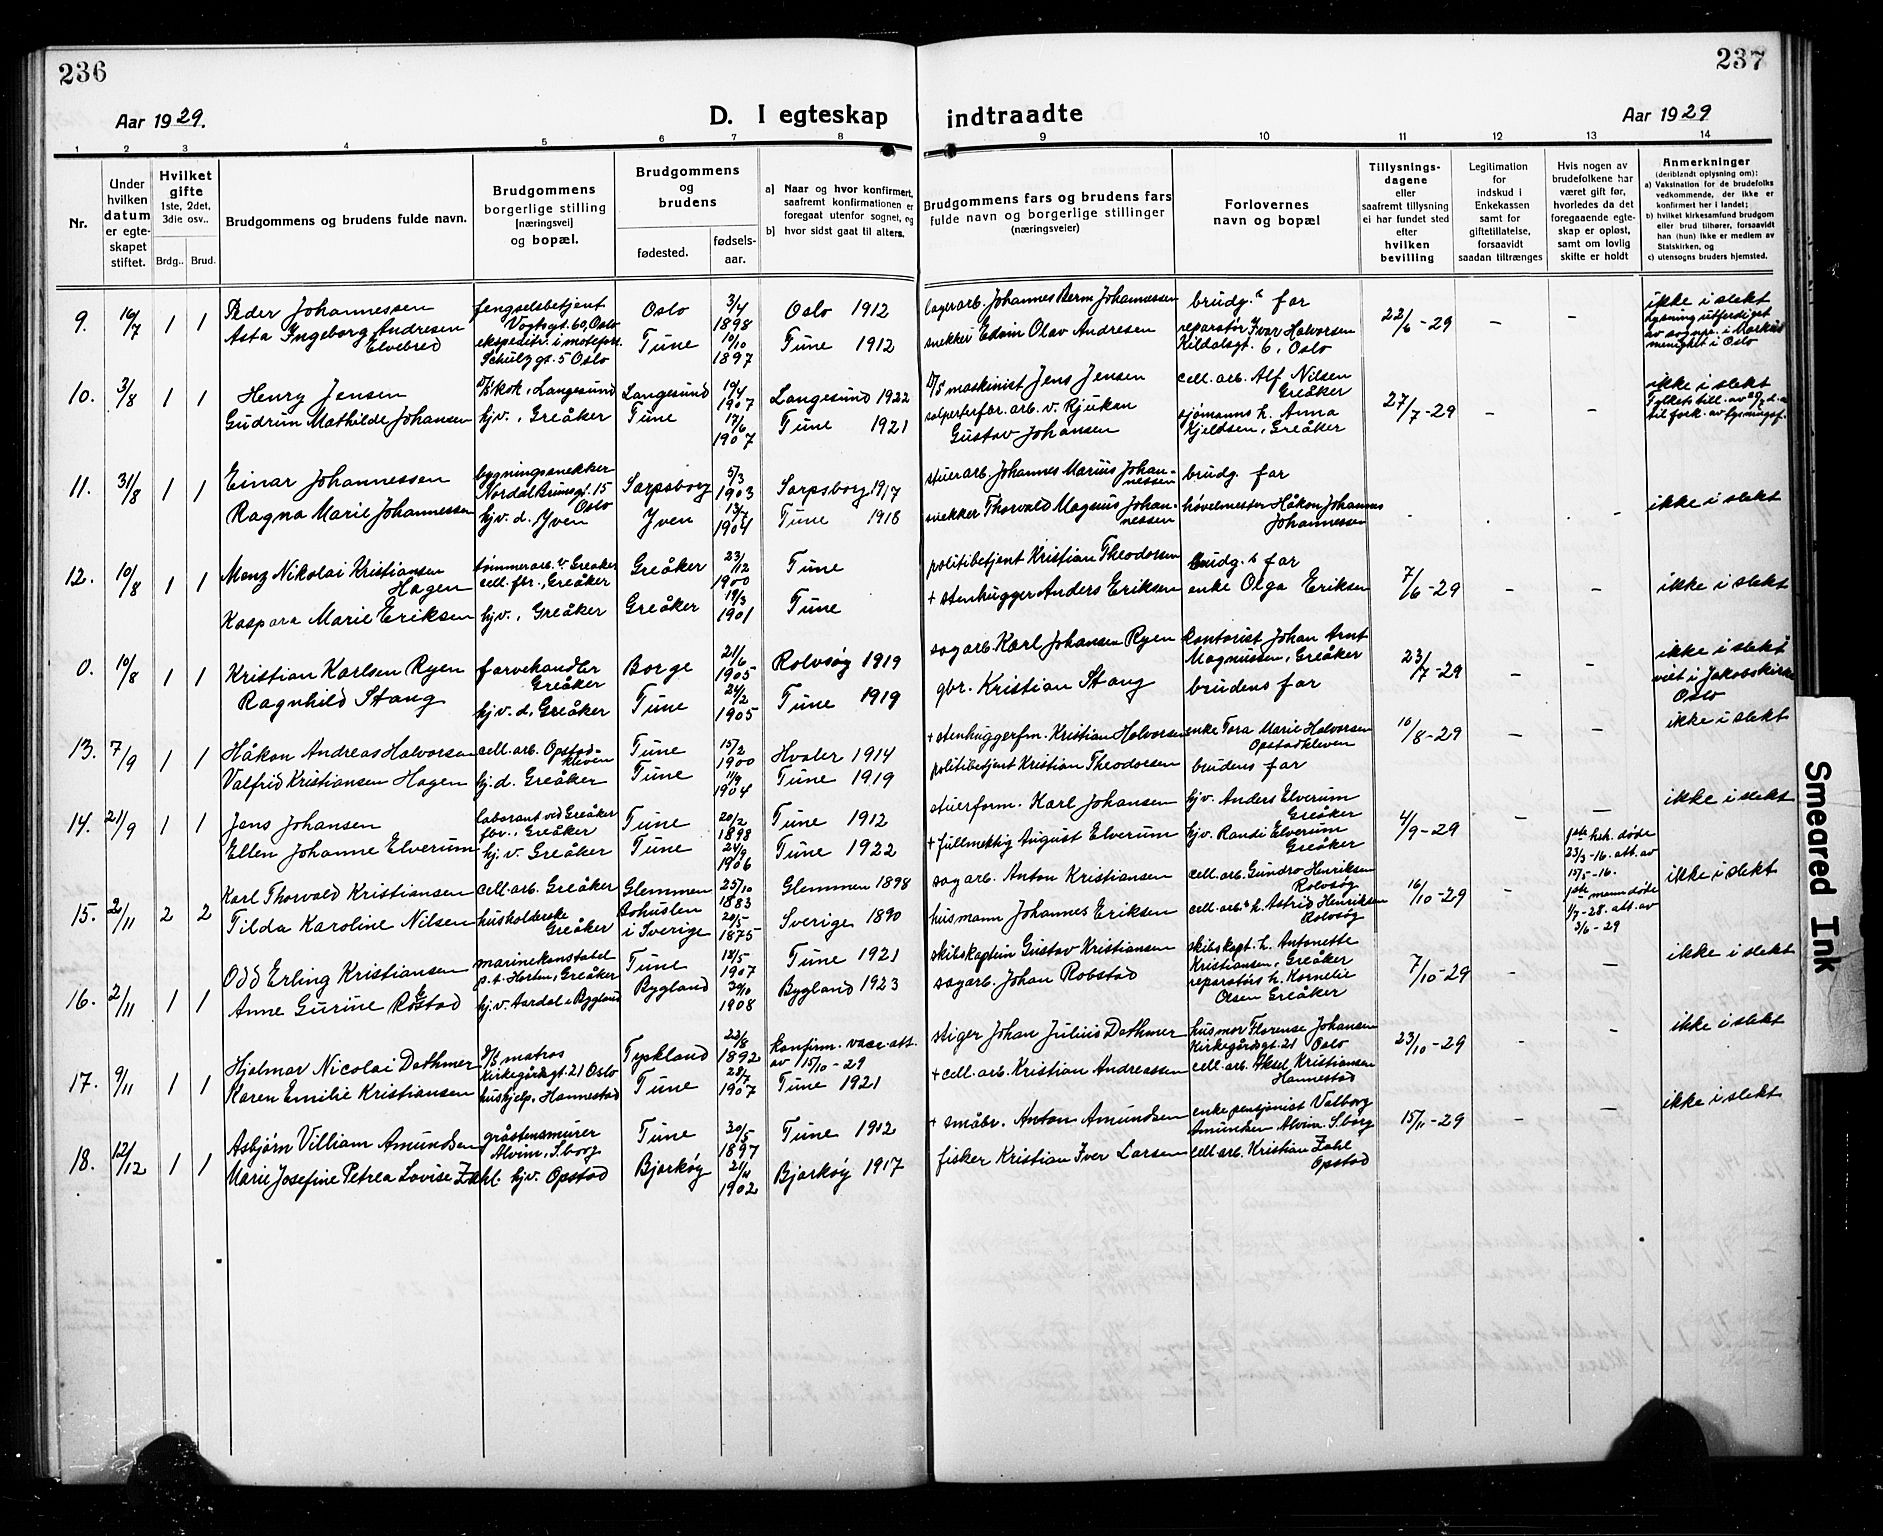 236
237
Aar 1929.
D. I egteskap
indtraadte
Aar 1929
1 2 3 4 5 6 7 8 9 10 11 12 13 14
Nr.
Under hvilken datum er egteskapet stiftet.
Hvilket gifte
1ste, 2det, 3die osv..
Brdg.. Brud.
Brudgommens og brudens fulde navn.
Brudgommens borgerlige stilling [næringsvei] og bopæl.
Brudgommens og brudens
fødested.
fødselsaar.
a) Naar og hvor konfirmert, saafremt konfirmationen er foregaat utenfor sognet, og
b) hvor sidst gaat til alters.
Brudgommens fars og brudens fars fulde navn og borgerlige stillinger (næringsveier)
Forlovernes navn og bopæl
Tillysningsdagene eller saafremt tillysning ei har fundet sted efter hvilken bevilling
Legitimation for indskud i Enkekassen samt for giftetillatelse, forsaavidt saadan tiltrænges
Hvis nogen av brudefolkene har været gift før, hvorledes da det foregaaende egteskap er opløst, samt om lovlig skifte er holdt
Anmerkninger
(deriblandt oplysning om):
a) Vaksination for de brudefolks vedkommende, der ikke er konfirmert her i landet;
b) hvilket kirkesamfund brudgom eller brud tilhører, forsaavidt han (hun) ikke er medlem av Statskirken, og
c) utensogns bruders hjemsted.
9. 1 1 Peder Johannessen fengselsbetjent Vogtsgt. 60, Oslo Oslo 3/4 1898 Oslo 1912 lagerarb. Johannes Herm Johannessen brudg.s far 22/6-29 – –
Asta Ingeborg Andresen Elvebred Schulzgt. 5 Oslo Tune 1897 Tune 1912 snekker Edvin Olav Andresen reparatør Ivar Halvorsen Kildalsgt. 6, Oslo
ikke i slekt Lysning utferdiget av sognepr. i Markus menighet i Oslo
10. 3/8 1 1 Henry Jensen kok, Langesund Langesund 1907 Langesund 1922 maskinist Jens Jensen cell. arb. Alf Nilsen Greåker 27/7-29 – –
Gudrun Mathilde Johansen hjv., Greåker Tune 1907 Tune 1921 arb. v. Rjukan Gustav Johansen sjømanns h. Anna Kjeldsen, Greåker
ikke i slekt
11. 31/8 1 1 Einar Johannessen bygningssnekker Nordal Brunsgt. 15 Oslo Sarpsborg 5/3 1903 Sarpsborg 1917 stuerarb. Johannes Marius Johannessen brudg. far
Ragna Marie Johannessen hjv. d. Yven Yven 13/7 1904 Tune 1918 snekker Thorvald Magnus Johannessen høvelmester Håkon Johannes Johannessen ikke i slekt
12. 10/8 1 1 Menz Nikolai Kristiansen Hagen tømmerarb. v. Greaker cell. fbr., Greåker Greåker 23/12 1900 Tune politibetjent Kristian Theodorsen brudg.s far 7/6-29 – – ikke i slekt
Kaspara Marie Eriksen hjv., Greåker Greåker 19/3 1901 Tune + stenhugger Anders Eriksen enke Olga Eriksen
0. 10/8 1 1 Kristian Karlsen Ryen farvehandler Greåker Borge 21/6 1905 Rolvsøy 1919 sagarb. Karl Johansen Ryen kontorist Johan Arnt Magnussen, Greåker 23/7-29 – –
Ragnhild Stang hjv. d. Greåker Tune 24/2 1905 Tune 1919 gbr. Kristian Stang brudens far
ikke i slekt viet i Jakobskirke Oslo
13. 7/9 1 1 Håkon Andreas Halvorsen cell. arb. Opstadkleven Tune 15/2 1900 Hvaler 1914 + stenhuggerfm. Kristian Halvorsen enke Tora Marie Halvorsen Opstadkleven 16/8-29 – – ikke i slekt
Valfrid Kristiansen Hagen hj. d. Greåker Tune 1904 Tune 1919 politibetjent Kristian Theodorsen brudens far
14. 21/9 1 1 Jens Johansen laborant ved Greåker fbr., Greåker Tune 20/2 1898 Tune 1912 stuerform. Karl Johansen hjv. Anders Elverum Greåker 4/9-29 – – ikke i slekt
Ellen Johanne Elverum hj. v. Greåker Tune 24/9 1906 Tune 1922 + fullmektig August Elverum hjv. Randi Elverum Greåker
15. 2/11 2 2 Karl Thorvald Kristiansen cell. arb. Greåker Glemmen 25/10 1883 Glemmen 1898 sagarb. Anton Kristiansen cell. arb. Gundro Henriksen Rolvsøy 16/10-29 –
1ste hsh. døde 23/3-16. att. av 15/5-16.
1ste mann døde 1/7-28. att. av 3/6-29
ikke i slekt
Tilda Karoline Nilsen husholderske Greåker Bohuslen i Sverige 20/5 1875 Sverige 1890 husmann Johannes Eriksen cell. arb.s h. Astrid Henriksen Rolvsøy
16. 2/11 1 1 Odd Erling Kristiansen marinekonstabel p.t. Horten, Greåker Tune 1907 Tune 1921 skibskaptein Gustav Kristiansen skibskapt. h. Antonette Kristiansen, Greåker 7/10-29 – – ikke i slekt
Anne Gurine Robstad hj. v. Aardal i Bygland Bygland 1908 Bygland 1923 sagarb. Johan Robstad reparatørs h. Kornelie Olsen Greåker
17. 9/11 1 1 Hjalmar Nicolai Dathmer matros Kirkegårdsgt. 21 Oslo Tyskland 1892 Konfirm. vacc. att av 15/10-29 stiger Johan Julius Dathmer husmor Florense Johansen Kirkegårdsgt. 21 Oslo 23/10-29 – – ikke i slekt
Karen Emilie Kristiansen hushjelp, Hannestad Tune 28/7 1907 Tune 1921 + cell. arb. Kristian Andreassen cell. arb. Aksel Kristiansen Hannestad
18. 12/12 1 1 Asbjørn Villiam Amundsen gråstensmurer Alvim, S.borg Tune 20/5 1897 Tune 1912 + småbr. Anton Amundsen enke pensjonist Valborg Amundsen Alvim, S.borg 15/11-29 – – ikke i slekt
Marie Josefine Petrea Lovise Zahl. hjv. Opstad Bjarkøy 1902 Bjarkøy 1917 fisker Kristian Iver Larsen cell. arb. Kristian Zahl Opstad
Smeared Ink